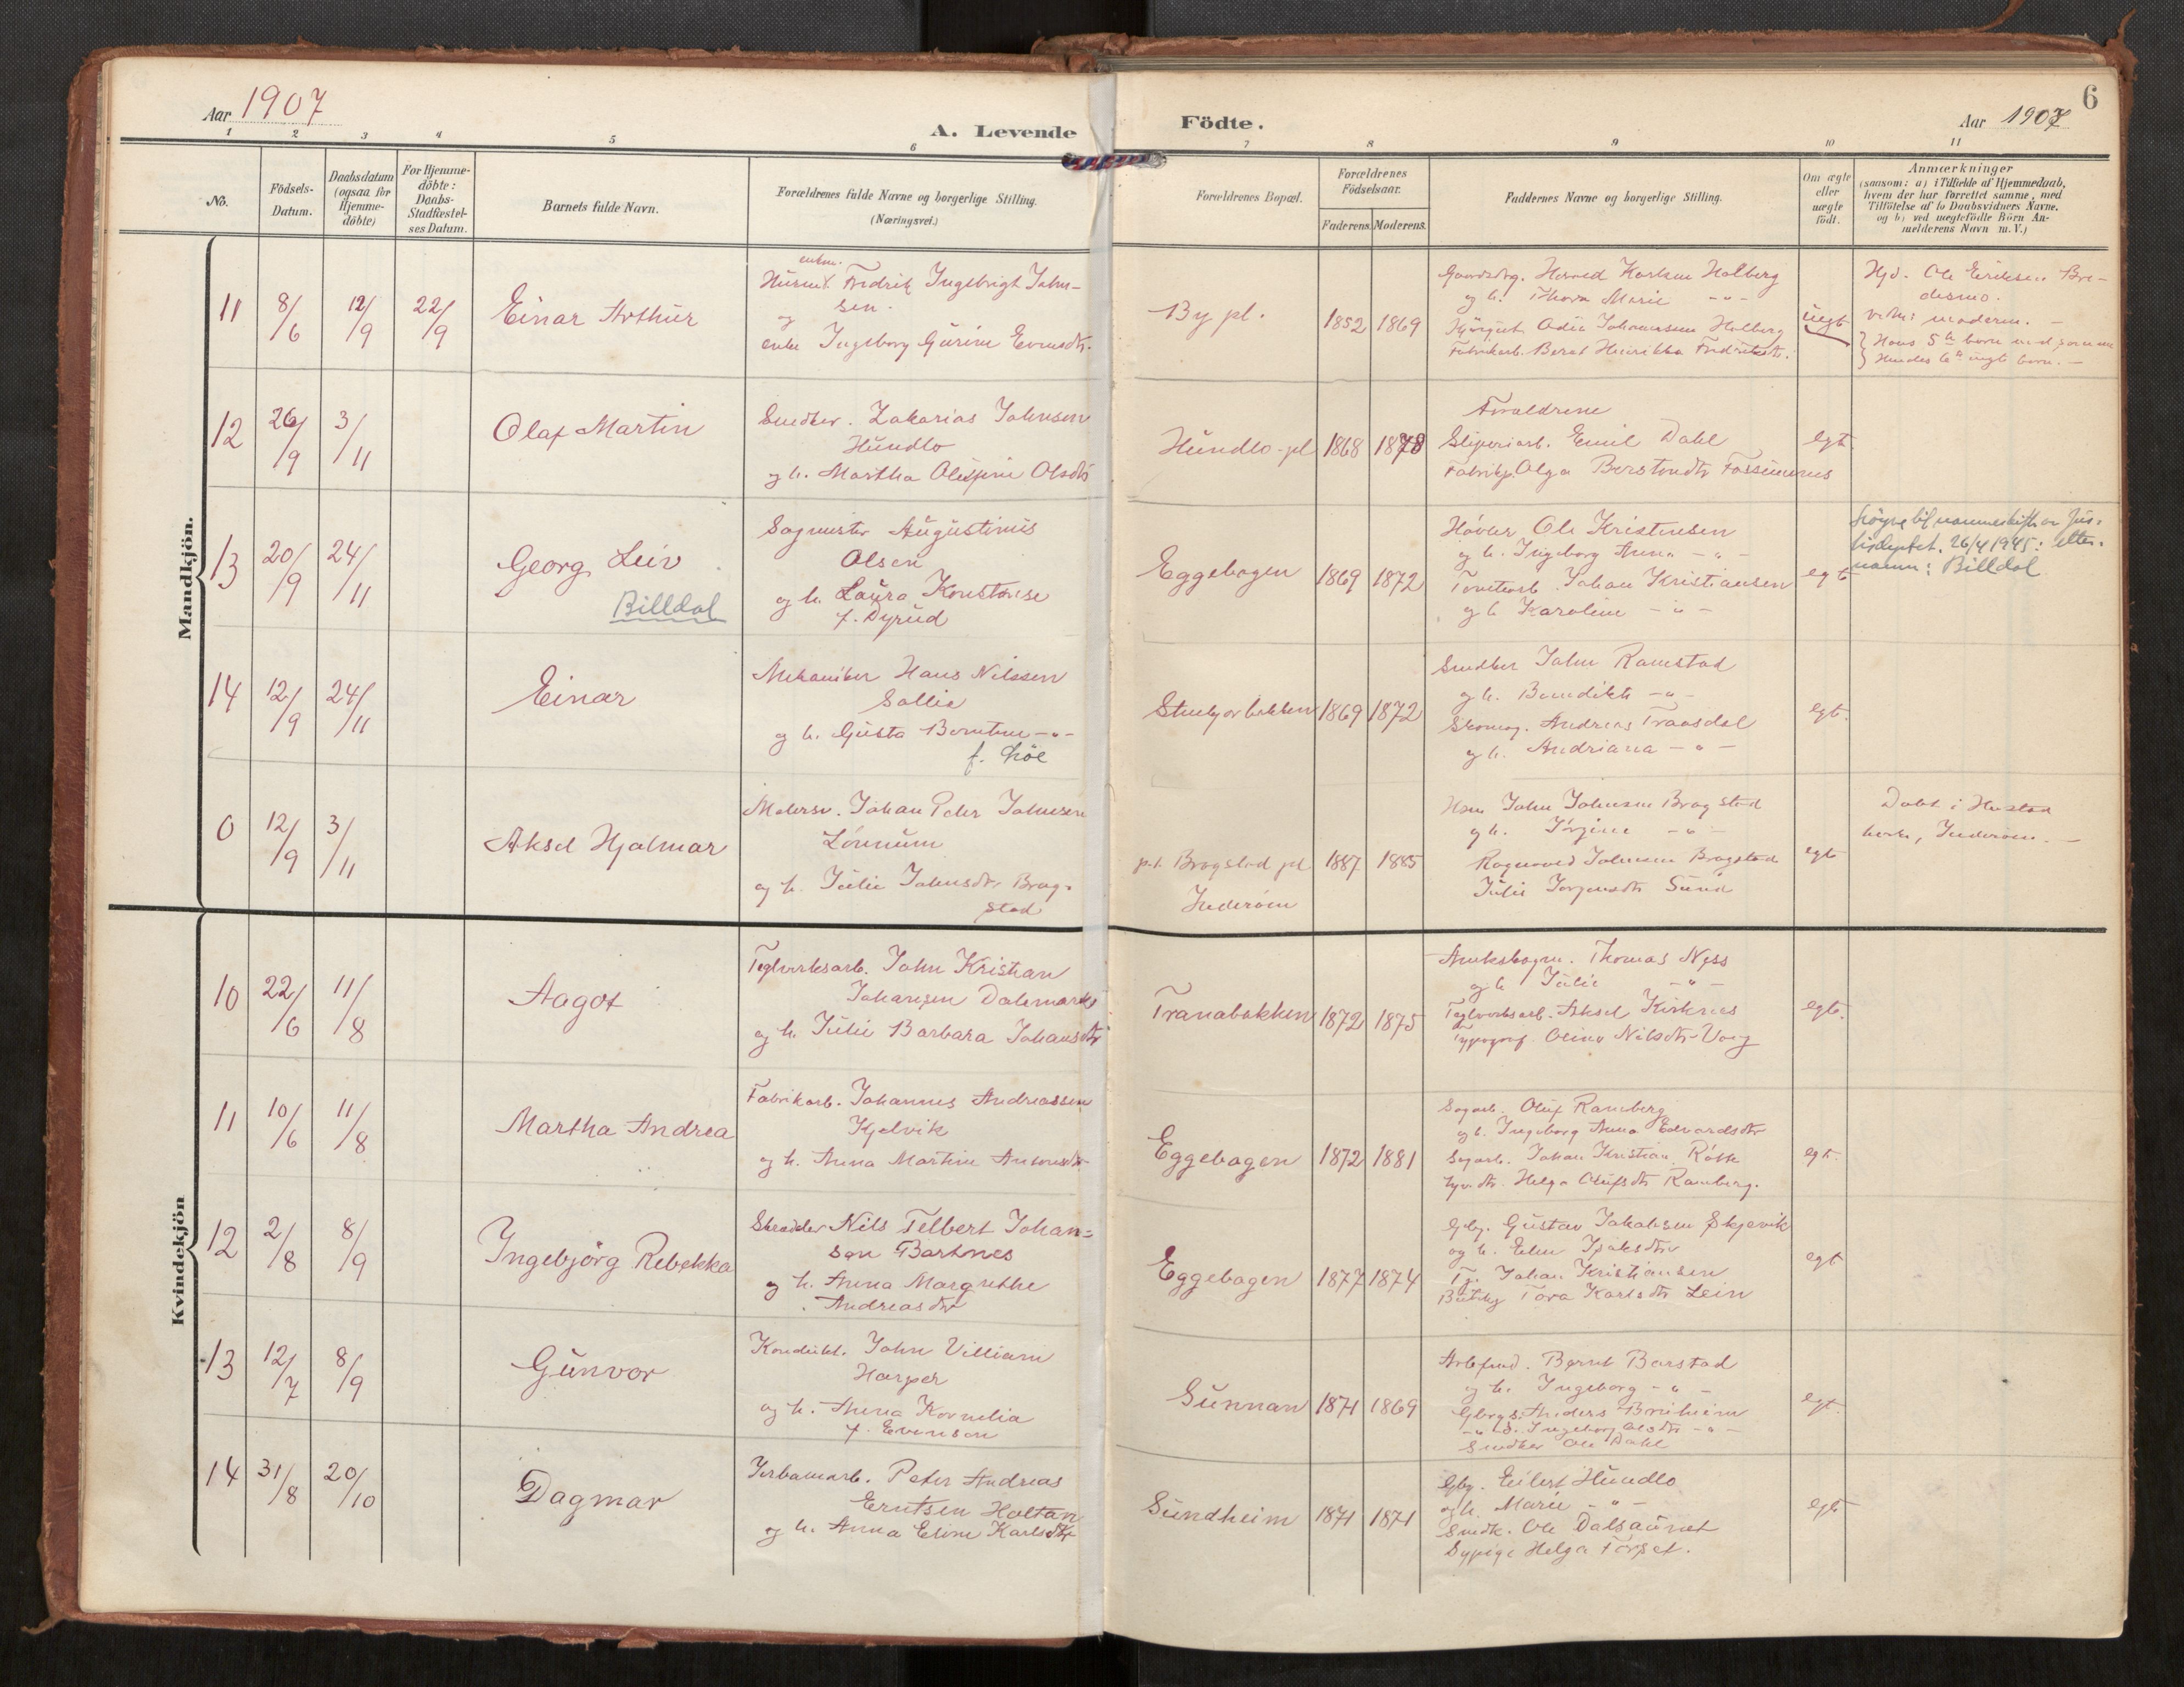 Aar 1907
A. Levende
Födte.
Aar 1907
6
1 2 3 4 5 6 7 8 9 10 11
No.
Födsels-
Datum.
Daabsdatum
(ogsaa for
Hjemme-
döbte)
For Hjemme-
döbte:
Daabs-
Stadfæstel-
ses Datum.
Barnets fulde Navn.
Forældrenes fulde Navne og borgerlige Stilling.
(Næringsvei.)
Forældrenes Bopæl.
Forældrenes
Födselsaar.
Faderens. Moderens.
Faddernes Navne og borgerlige Stilling.
Om ægte
eller
uægte
födt.
Anmærkninger
(saasom: a) i Tilfælde af Hjemmedaab,
hvem der har forrettet samme, med
Tilföielse af to Daabsvidners Navne.
og b) ved uegtefödte Börn An-
melderens Navn m. V.)
Mandkjön.
11 8/6 12/9 22/9
Einar Arthur
Fredrik Ingebrigt John-
sen.
og
enke Ingeborg Gurine
By pl.
1852 1869
Gaardbrg. Karlsen Holberg
og h. Thora Marie -"-
Odin Johannesen Holberg
Fabrikarb. Beret Henrikka
uegt
Hjd. Ole Eriksen Bre-
desmo.
moderen. -
Hans 5te barn med samme
Hendes 6te uegte barn. -
12 26/9 3/11
Olaf Martin
Snedker. Zakarias Johnsen
Hundlo
og h. Martha Olsdtr
Hundlo-pl
1868 1878
Forældrene
Sliperiarb. Emil Dahl
Olga Fossumnes
egt.
13 20/9 24/11
Georg Leiv
Billdal
Sagmester Augustinus
Olsen
og h. Laura Konstanse
f. Dyrud
Eggebogen
1869 1872
Høvler Ole Kristensen
og h. Ingeborg Anna -"-
Tomtearb. Johan Kristiansen
og h Karoline -"-
egt
26/4 1945: etter-
namn: Billdal
14 12/9 24/11
Einar
Mekaniker Hans Nilssen
Sollie
og h. Gusta Berntine -"-
f. Höe
1869 1872
Snedker John Ramstad
og h. Benedikte -"-
Skomag. Andreas Traasdal
og h. Andriana -"-
egt.
0 12/9 3/11
Aksel Hjalmar
Malersv. Johan Peter Johnsen
Lönnum
og h. Julie Johnsdtr. Brag-
stad
p.t. Bragstad pl.
Inderöen
1887 1885
Hsm John Johnsen Bragstad
og h. Jörgine -"-
Ragnvald Johnsen Bragstad
Julie Jorgensdtr Sund
egt
Döbt i Hustad
kirke, Inderöen. -
Kvindekjön
10 22/6 11/8
Aagot
Teglverksarb. John Kristian
Johansen Dalemark
og h. Julie Barbara Johansdtr
Tranabakken
1872 1875
Thomas Næss
og h Julie -"-
Teglverksarb. Aksel Kirknes
Typograf. Oline Nilsdtr Voig
egt.
11 10/6 11/8
Martha Andrea
Fabrikarb. Johannes Andreassen
Kjelvik
og h. Anna Martine
Eggebogen
1872 1881
Sagarb. Oluf Ramberg
og h. Ingeborg Anna Edvardsdtr
Sagarb. Johan Kristian
Helga Olufsdtr Ramberg.
egt.
12 2/8 8/9
Ingebjörg Rebekka
Skrædder Nils Telbert Johan-
sen Bartnes
og h. Anna Margrethe
Andreasdtr
Eggebogen
1877 1874
Gbr. Gustav Jakobsen Skjevik
og h. Isaksdtr
Johan Kristiansen
Tora Karlsdtr Lein
egt
13 12/7 8/9
Gunvor
Kondukt. John Villiam
Harper
og h. Anna Kornelia
f. Evensen
Sunnan
1871 1869
Bernt Barstad
og h. Ingeborg -"-
Anders
Ingeborg Olsdtr -"-
Snedker Ole Dahl
egt.
14 31/8 20/10
Dagmar
Jerbanearb. Peter Andreas
Erntsen Holtan
og h. Anna Eline Karlsdtr
Sundheim
1871 1871
Gbr. Eilert Hundlo
og h. Marie -"-
Snedk. Ole Dalsaunet
Sypige Helga Förset.
egt